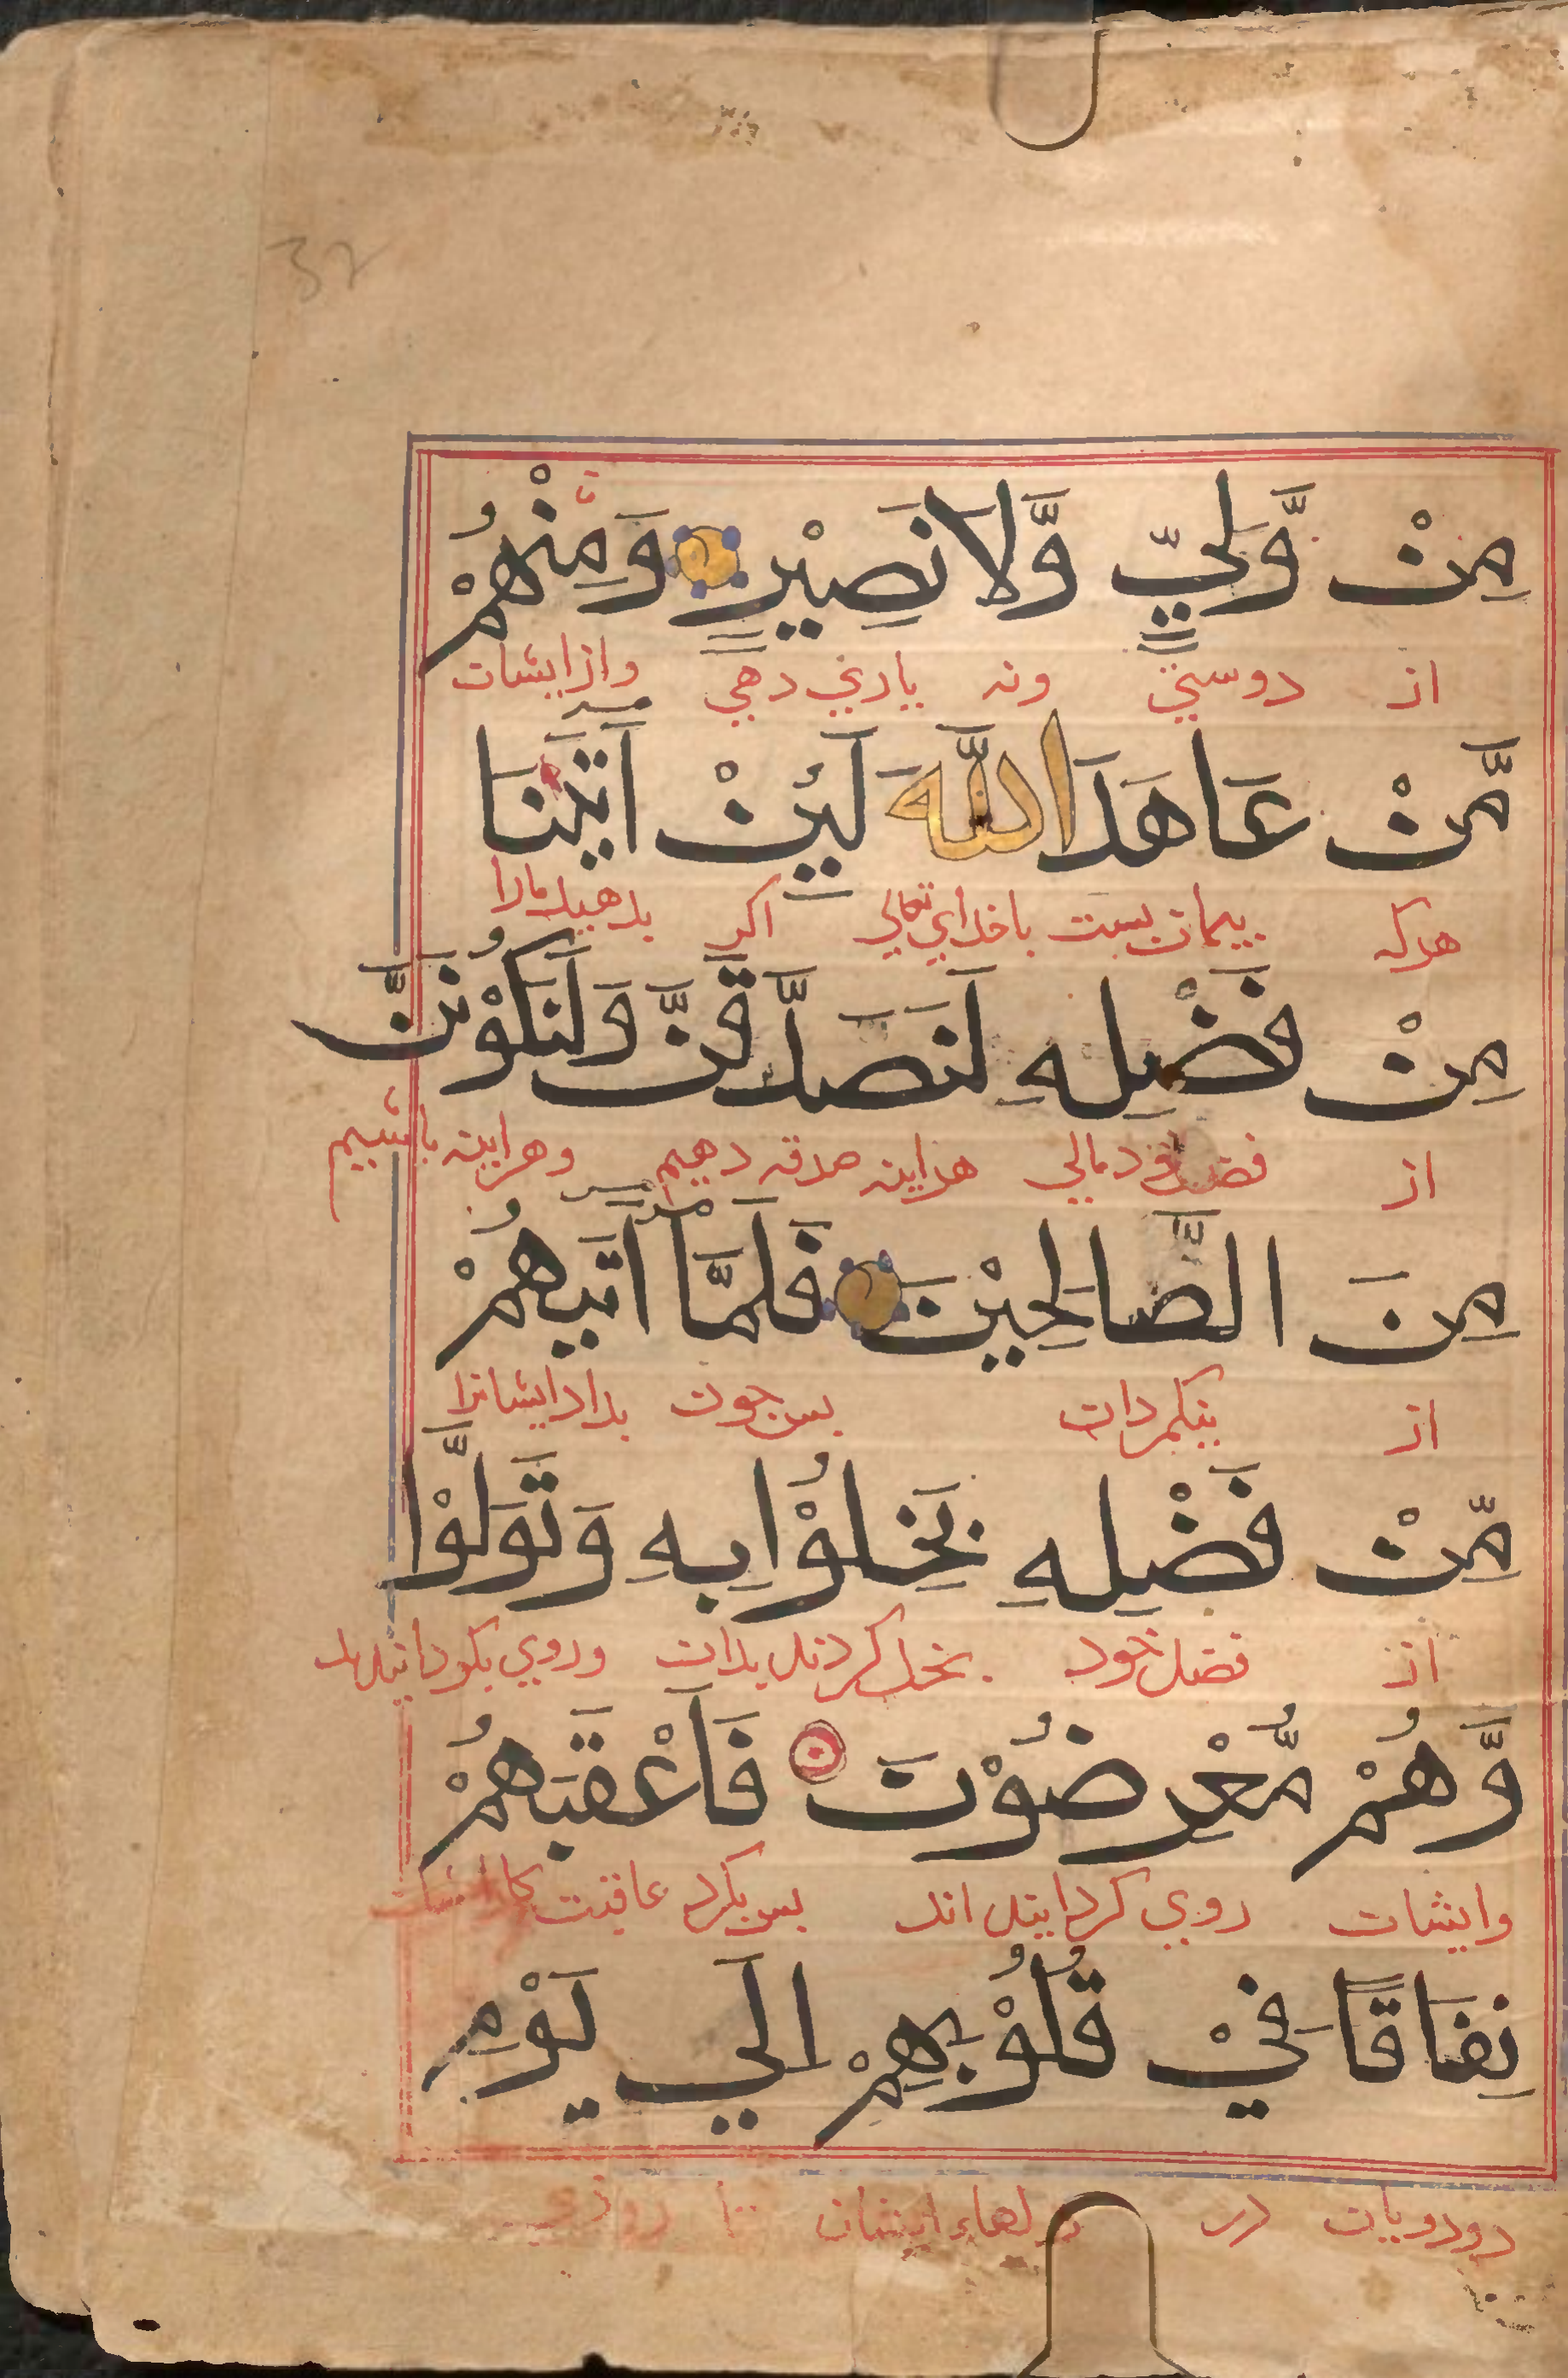 32
مِنْ وَّلِيٍّ وَّلَا نَصِيْرٍ وَمِنْهُمْ
از دوستي ونه ياري دهي وازايشان
مَّنْ عَاهَدَ اللّٰهَ لَئِنْ اٰتٰينَا
هركه پيمان بست باخداي تعالي اكر بدهد مارا
مِنْ فَضْلِهِ لَنَصَّدَّقَنَّ وَلَنَكُوْنَنَّ
از فضل مالي هراينه صدقه دهيم وهراينه باشيم
مِنَ الصَّالِحِيْنَ فَلَمَّا اٰتٰيهُمْ
از نيكمردان پس چون بداد ايشانرا
مِّنْ فَضْلِهِ بَخِلُوْا بِهِ وَتَوَلَّوْا
از فضل خود بخل كردند بدان وروي بكردانيدند
وَّهُمْ مُّعْرِضُوْنَ فَاَعْقَبَهُمْ
وايشان روي كردانيده اند پس بكرد عاقبت
نِفَاقًا فِيْ قُلُوْبِهِمْ اِلَي يَوْمِ
دورويان در دلهاء ايشان تا روزي